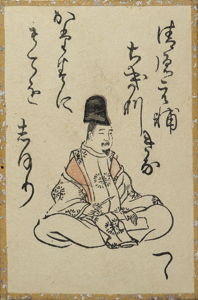 清原元輔
ちきりきな
かたみに
そてを
しほり
つゝ